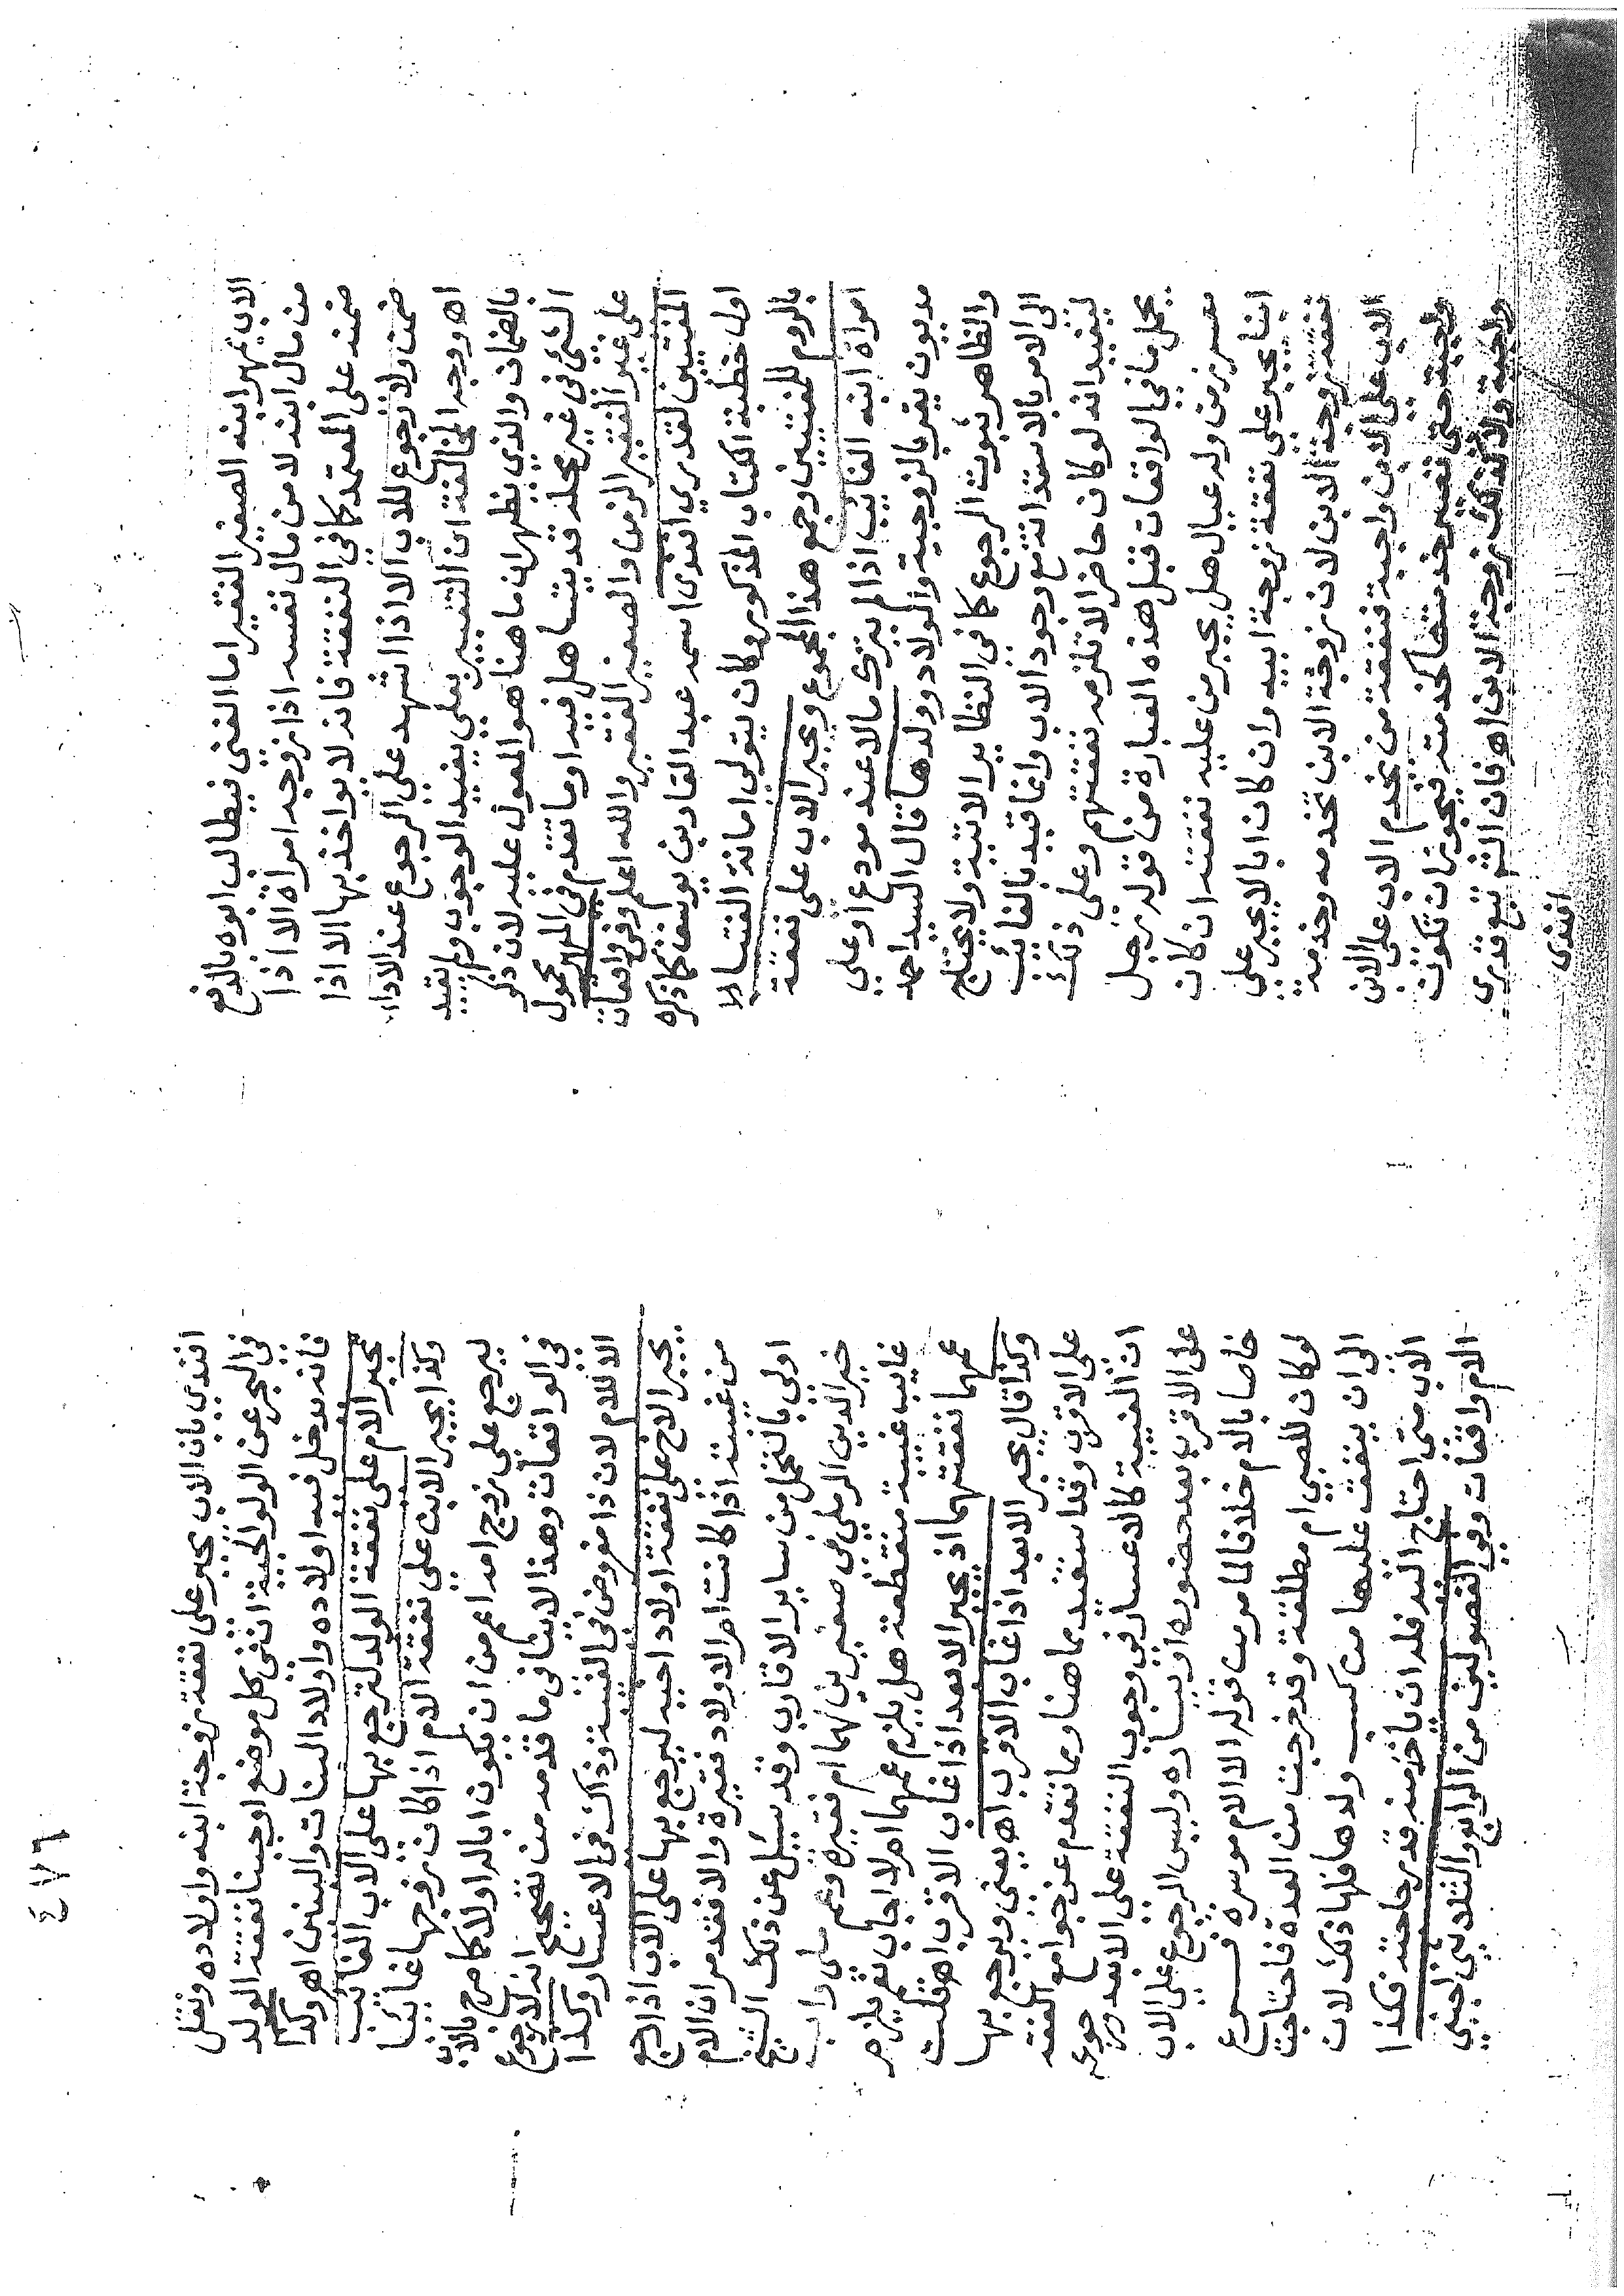 الاب يمهر ابنه الصغير الفقير اما الغني فيطالب ابوه بالدفع
من مال ابنه لا من مال نفسه اذا زوجه امراة الا اذا
ضمنه على المعتمد كما في النفقة فانه لا يواخذ بها الا اذا
ضمن ولا رجوع للاب الا اذا اشهد على الرجوع عند الاداء
اه ووجه المخالفة ان التعبير بعلي يفيد الوجوب ولم يقيد
بالضمان والذي يظهر ان ما هنا هو المعول عليه لان ذكر
الشئ في غير محله قد يتساهل فيه او ما تقدم في المهر محمول
على غير الفقير الزمن والصغير الفقير والله اعلم وفي واقعات
المفتيين لقدري افندى اسمه عبد القادر بن يوسف كما ذكره
اول خطبة الكتاب المذكور وكان يتولي امانة الفتيا لا
بالروم للمفتيين وجمع هذا المجموع ويجبر الاب على نفقة
امراة ابنه الغايب اذا لم يترك مالا عند مودع او على
مديون يقر بالزوجية والولاد وولدها قال السيد احمد
والظاهر ثبوت الرجوع كما في النظاير الاتية ولا يحتاج
الى الامر بالاستدانة مع وجود الاب وانما قيد بالغائب
ليفيد انه لو كان حاضرا لا تلزمه نفقتهم وعلى ذلك
يحمل ما في الواقعات قبل هذه العبارة من قوله رجل
معسر زمن وله عيال هل يجبر من عليه نفقته ان كان
ابنا يجبر على نفقة زوجة ابيه وان كان ابا لا يجبر على
نفقة زوجة الابن لان زوجة الابن تخدمه وخدمة
الاب على الابن واجبة فنفقة من يخدم الاب على الابن
واجبة حتى تصير خدمتها كخدمته فيجوز ان تكون
واجبة ولا كذلك زوجة الابن اه فان الشئ تبع قدرى
افندى
٤٧٦
افندي بان الاب يجبر على نفقة زوجة ابنه واولاده ونقل
في البحر عن الولوالجية انثى كل موضع اوجبنا نفقة الولد
فانه يدخل فيه اولاده واولاد البنات والبنين اه وكذا
يجبر الام على نفقة الولد لترجع بها على الاب الغائب
وكذا يجبر الابن على نفقة الام اذا كان زوجها غايبا
ليرجع على زوج امه اعم من ان يكون ابا له اولا كما مرح بالاب
في الواقعات وهذا لا ينافي ما قدمه من تصحيح انه لا رجوع
الا للام لان ذا مفروض في الغيبة وذاك في الاعسار وكذا
يجبر الاخ على نفقة اولاد اخيه ليرجع بها على الاب اذا رجع
من غيبته اذا كانت ام الاولاد فقيرة والا فقد مر ان الام
اولى بالتحمل من ساير الاقارب وقد سئل عن ذلك الشيخ
خير الدين الرملي في صغيرين لهما ام فقيرة وعم ملي واب
غايب غيبة منقطعة هل يلزم عمهما ام لا اجاب نعم يلزم
عمهما نفقتهما اذ يجبر الابعد اذا غاب الاقرب اه قلت
وكذا قال يجبر الابعد اذا غاب الاقرب اه يعني ويرجع بها
على الاقرب وقد استفيد مما هنا ومما تقدم عن جوامع الفقه
ان الغيبة كالاعسار في وجوب النفقة على الابعد ورجوعه
على الاقرب بعد حضوره او يساره وليس الرجوع على الاب
خاصا بالام خلافا لما مر من قوله الا الام موسرة فسوع
لو كان للصبي ام مطلقة وقد خرجت من العدة فاحتاجت
الى ان ينفق عليها من كسب ولدها فلها ذلك لان
الاب متى احتاج اليه فله ان ياخذ منه قدر حاجته فكذا
الام واقعات وفي الفصولين من الرابع والثلاثين اجنبي